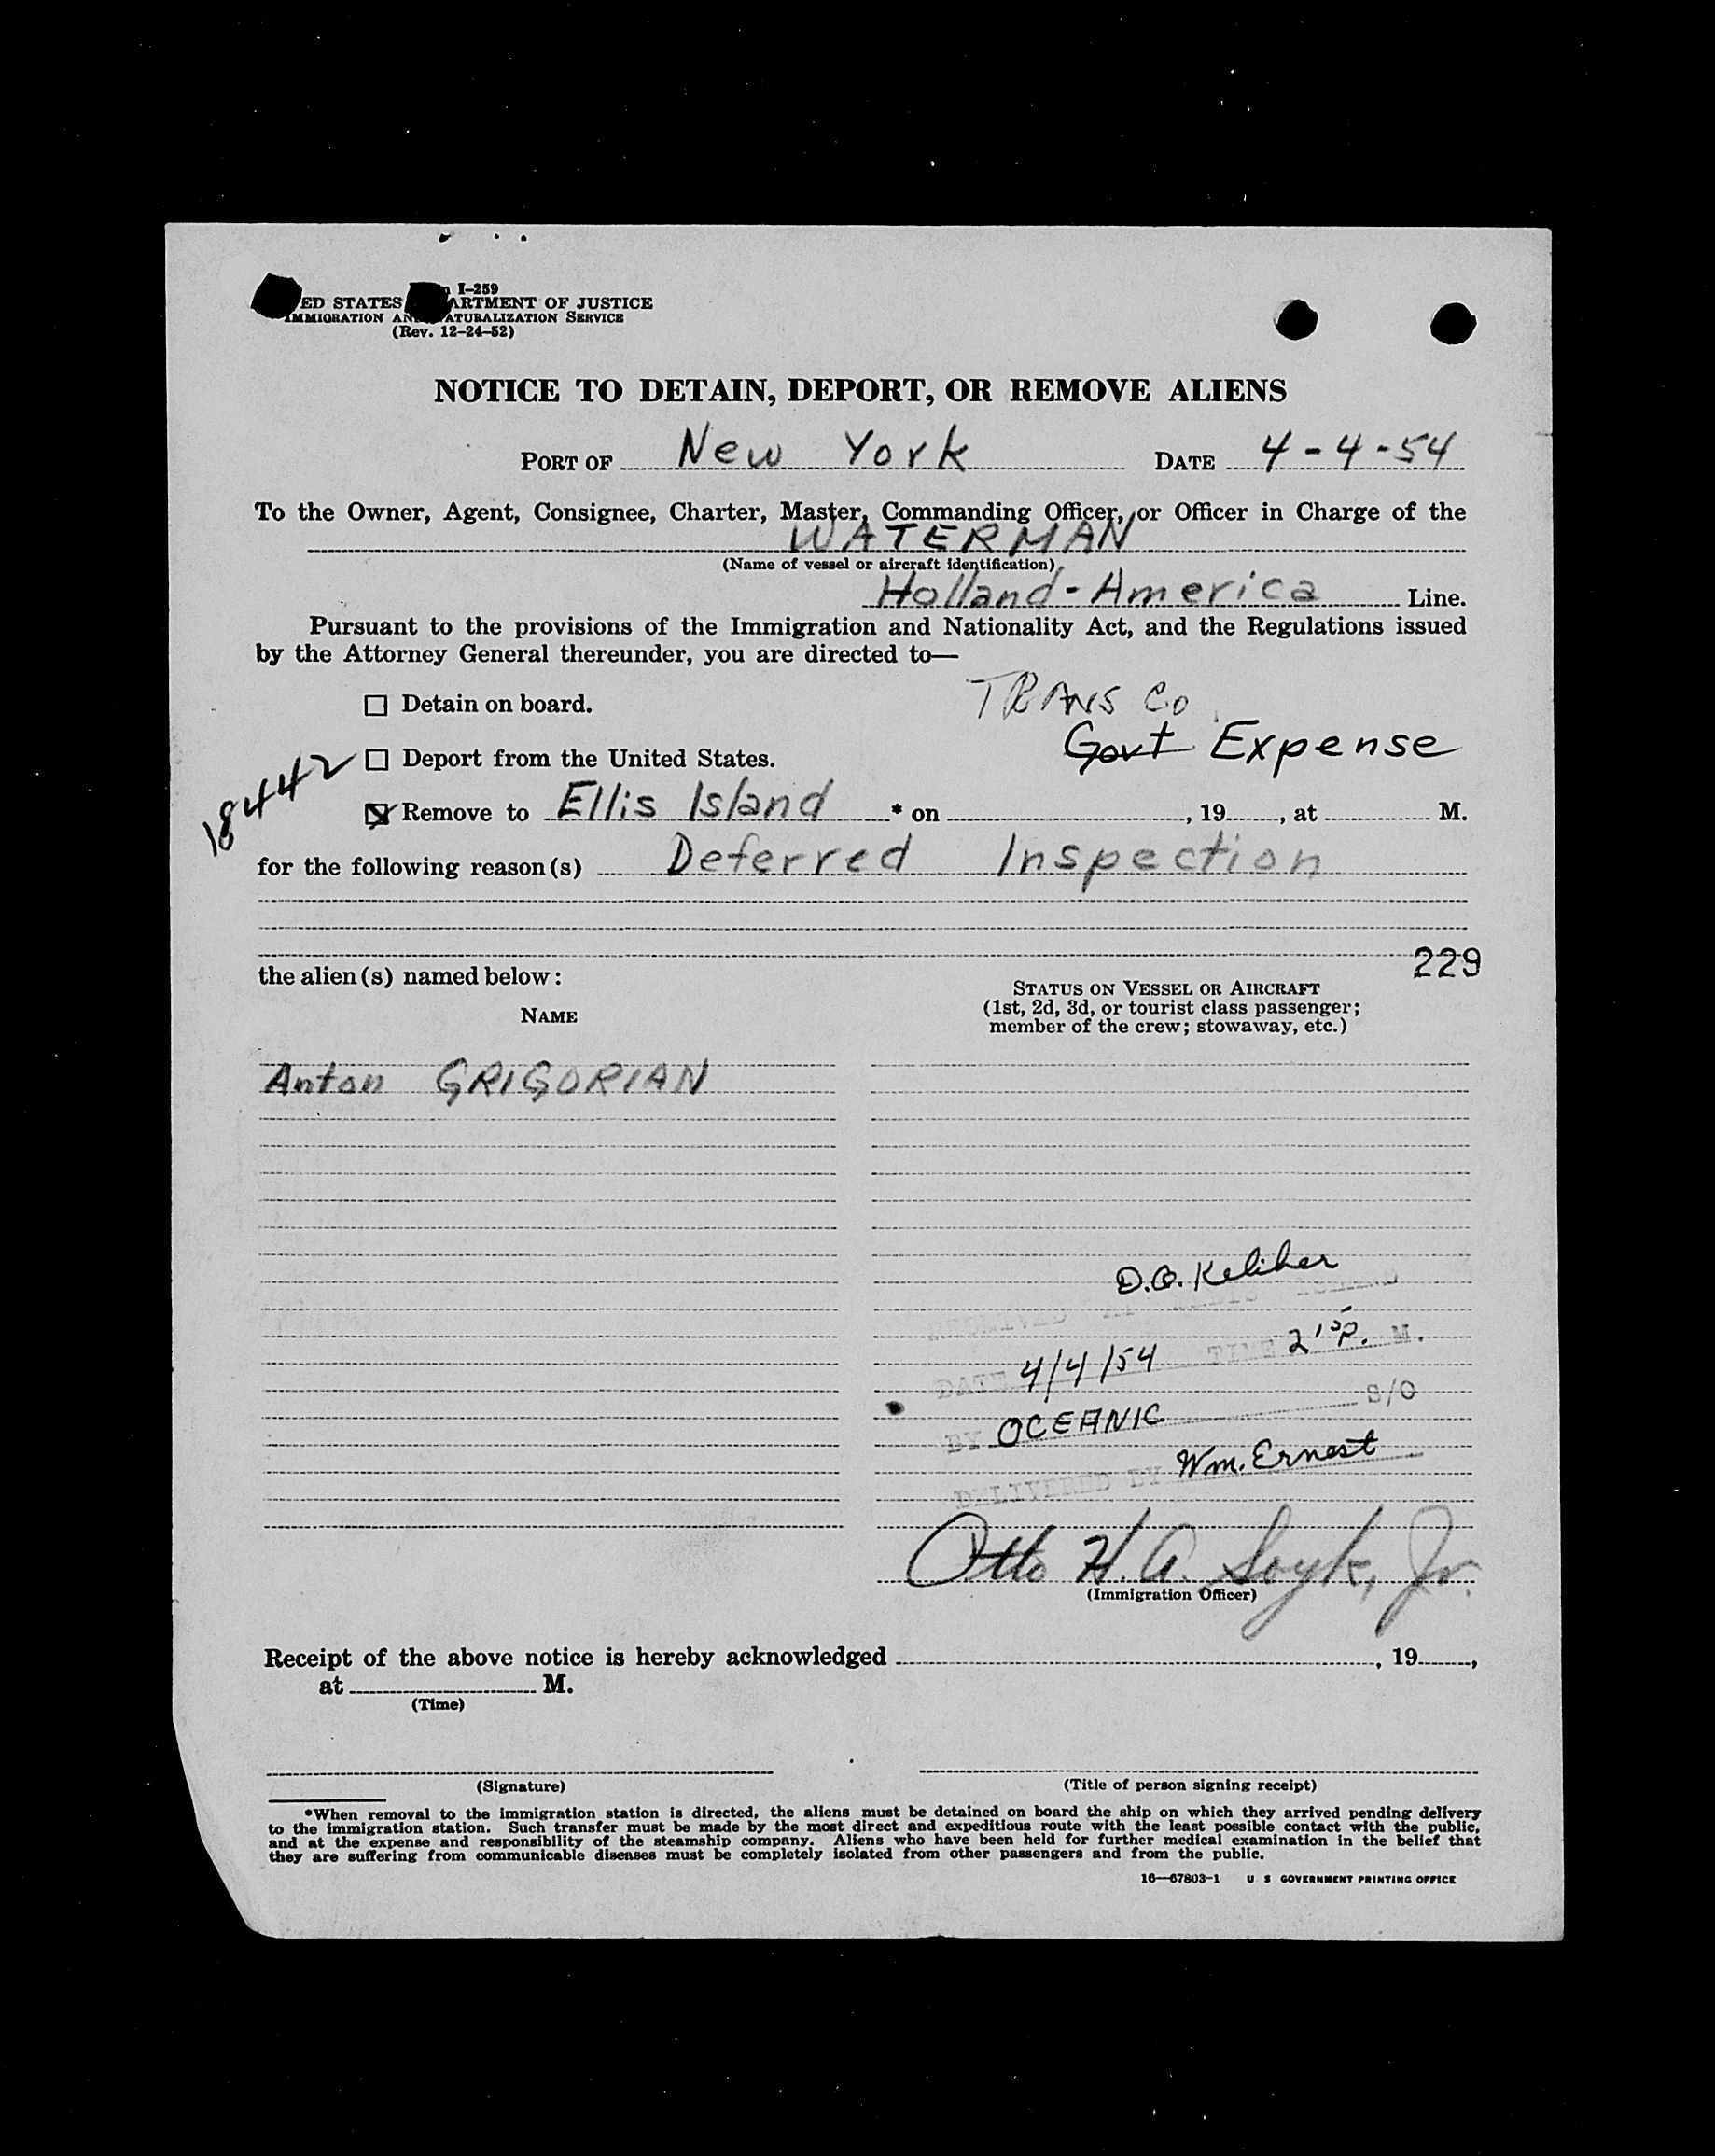 I-259
ED STATES ARTMENT OF JUSTICE
IMMIGRATION AN ATURALIZATION SERVICE
(Rev. 12-24-52)
NOTICE TO DETAIN, DEPORT, OR REMOVE ALIENS
PORT OF New York DATE 4-4-54
To the Owner, Agent, Consignee, Charter, Master, Commanding Officer, or Officer in Charge of the
WATERMAN
(Name of vessel or aircraft identification)
Holland-America Line.
Pursuant to the provisions of the Immigration and Nationality Act, and the Regulations issued
by the Attorney General thereunder, you are directed to—
TRANS Co
☐ Detain on board.
Govt Expense
☐ Deport from the United States.
18442
☒ Remove to Ellis Island * on , 19 , at M.
for the following reason(s) Deferred Inspection
229
the alien(s) named below:
STATUS ON VESSEL OR AIRCRAFT
(1st, 2d, 3d, or tourist class passenger;
member of the crew; stowaway, etc.)
NAME
Anton GRIGORIAN
D.O. Keliher
RECEIVED AT ELLIS ISLAND
DATE 4/4/54 TIME 2 15 P. M.
BY OCEANIC S/O
DELIVERED BY Wm. Ernest
Otto H. A. Soyk, Jr.
(Immigration Officer)
Receipt of the above notice is hereby acknowledged , 19 ,
at M.
(Time)
(Signature) (Title of person signing receipt)
*When removal to the immigration station is directed, the aliens must be detained on board the ship on which they arrived pending delivery
to the immigration station. Such transfer must be made by the most direct and expeditious route with the least possible contact with the public,
and at the expense and responsibility of the steamship company. Aliens who have been held for further medical examination in the belief that
they are suffering from communicable diseases must be completely isolated from other passengers and from the public.
16—67803-1 U S GOVERNMENT PRINTING OFFICE